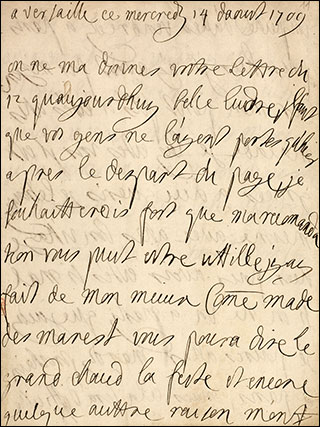 a versaille ce mercredy 14 daoust 1709
on ne ma donnes vottre lettre du
12 quaujourdhuy belle ludre, faut
que vos gens ne layent portes qu
apres le despart du page, je
souhaitterois fort que ma recomanda
tion vous puit estre uttille jy ay
fait de mon mieux Come made
des marest vous poura dire le
grand chaud la feste et encore
quelque auttre raison mont